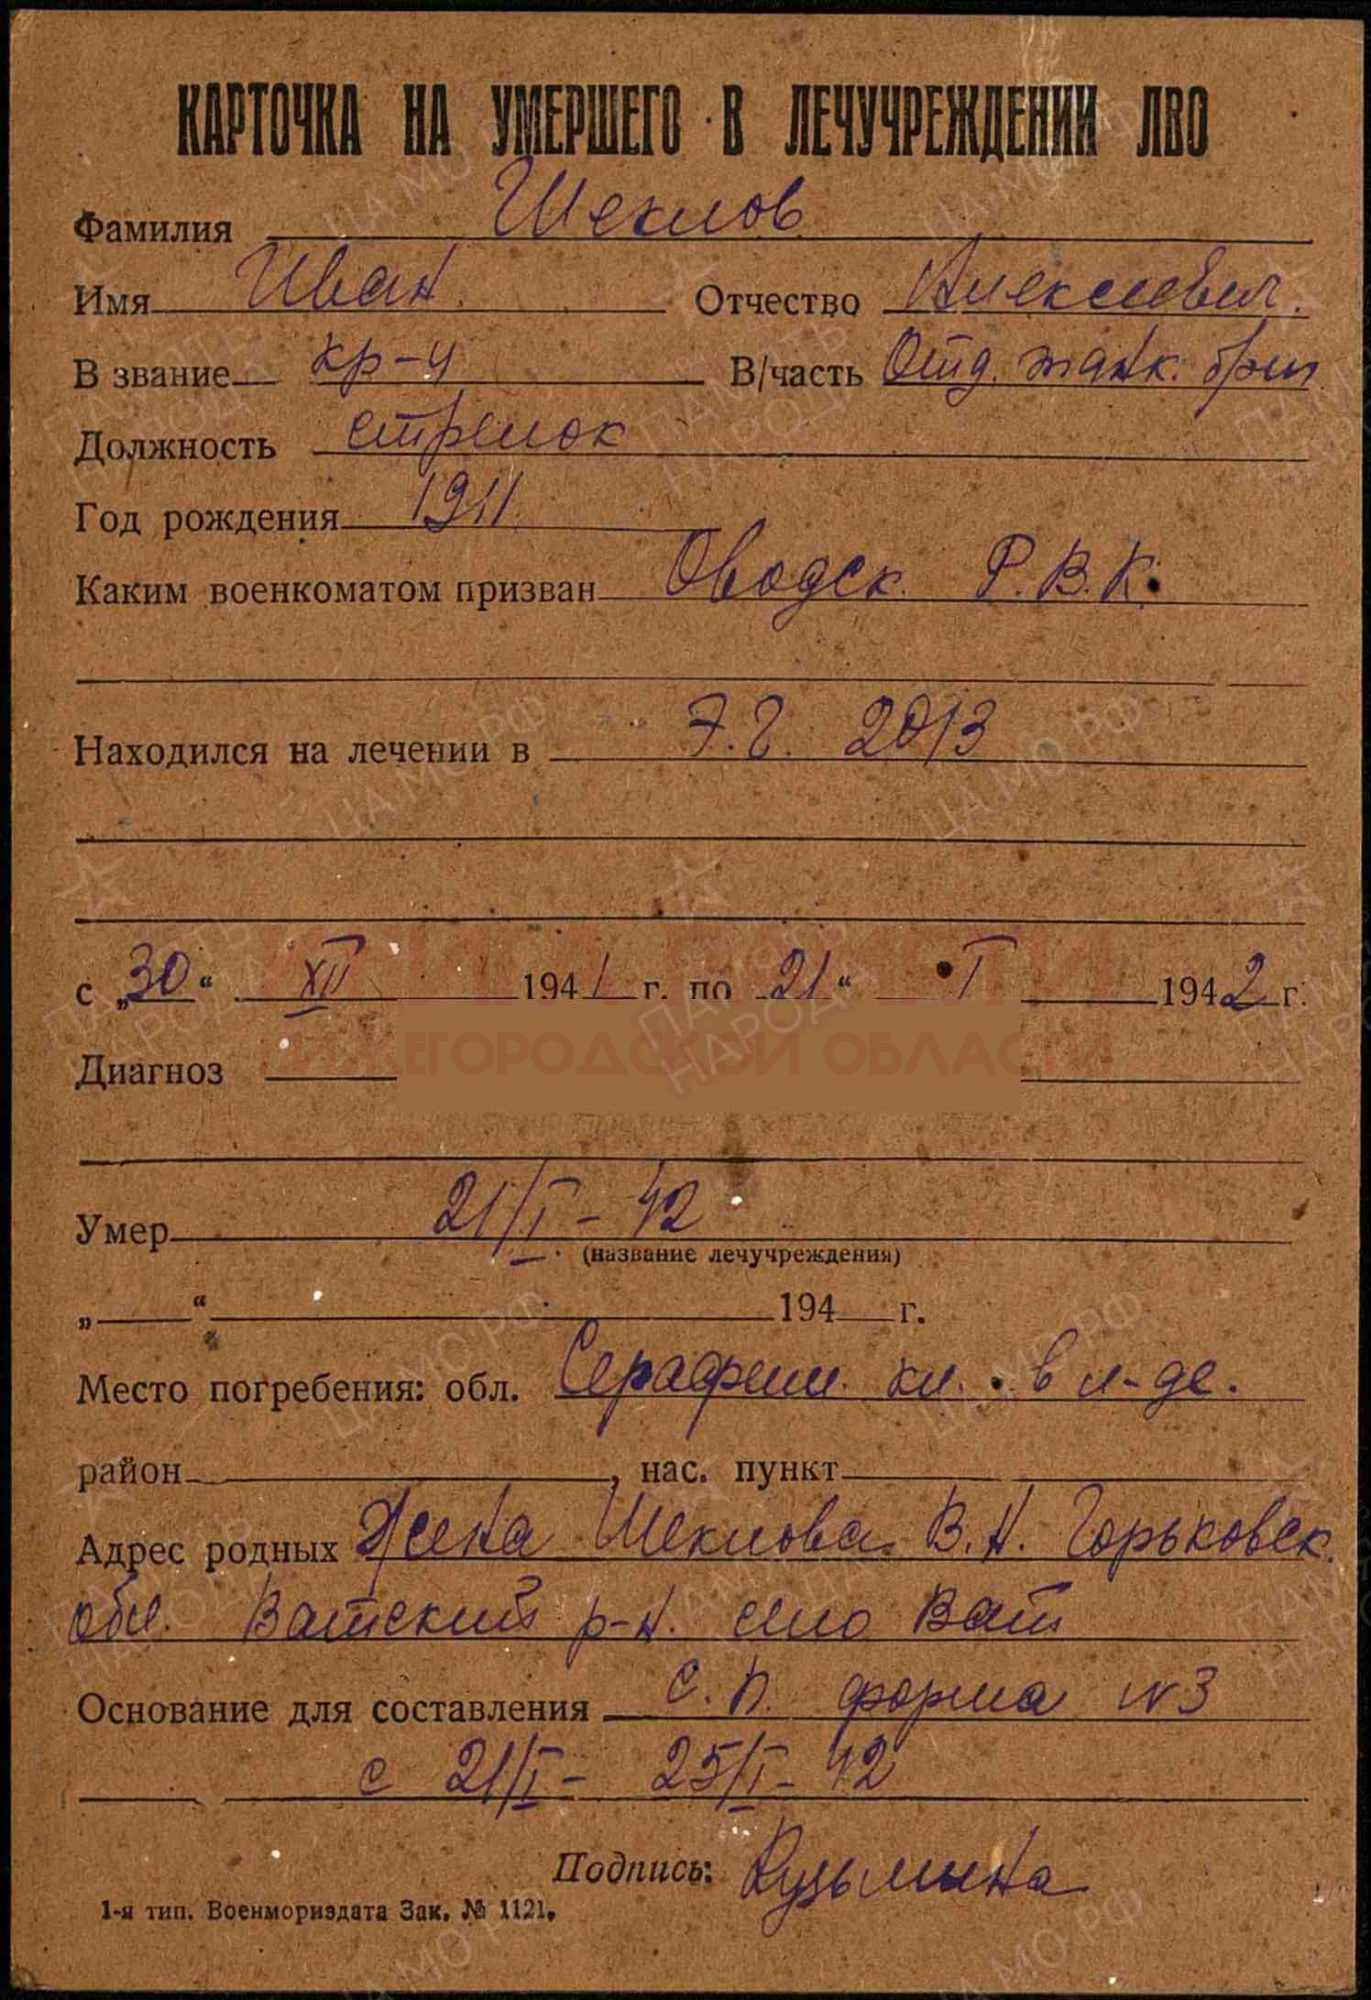 КАРТОЧКА НА УМЕРШЕГО В ЛЕЧУЧРЕЖДЕНИИ ЛВО
Фамилия Шеклов
Имя Иван. Отчество Алексеевич.
В звание кр-ц В/часть Отд. танк. бриг.
Должность стрелок
Год рождения 1911
Каким военкоматом призван Оводск. Р.В.К.
Находился на лечении в Э.Г. 2013
с „30“ XII 1941 г. по 21“ I 1942 г.
КНИГА ПАМЯТИ
НИЖЕГОРОДСКОЙ ОБЛАСТИ
Диагноз
Умер 21/I - 42
(название лечучреждения)
„ “ 194 г.
Место погребения: обл. Серафим. кл. в л-де.
район , нас. пункт
Адрес родных Жена Шеклова В.Н. Горьковск.
обл. Ватский р-н. село Ват
Основание для составления С.П. форма №3
с 21/I - 25/I - 42
Подпись: Кузьмина
1-я тип. Военмориздата Зак. № 1121.
ЦА МО РФ
ПАМЯТЬ НАРОДА